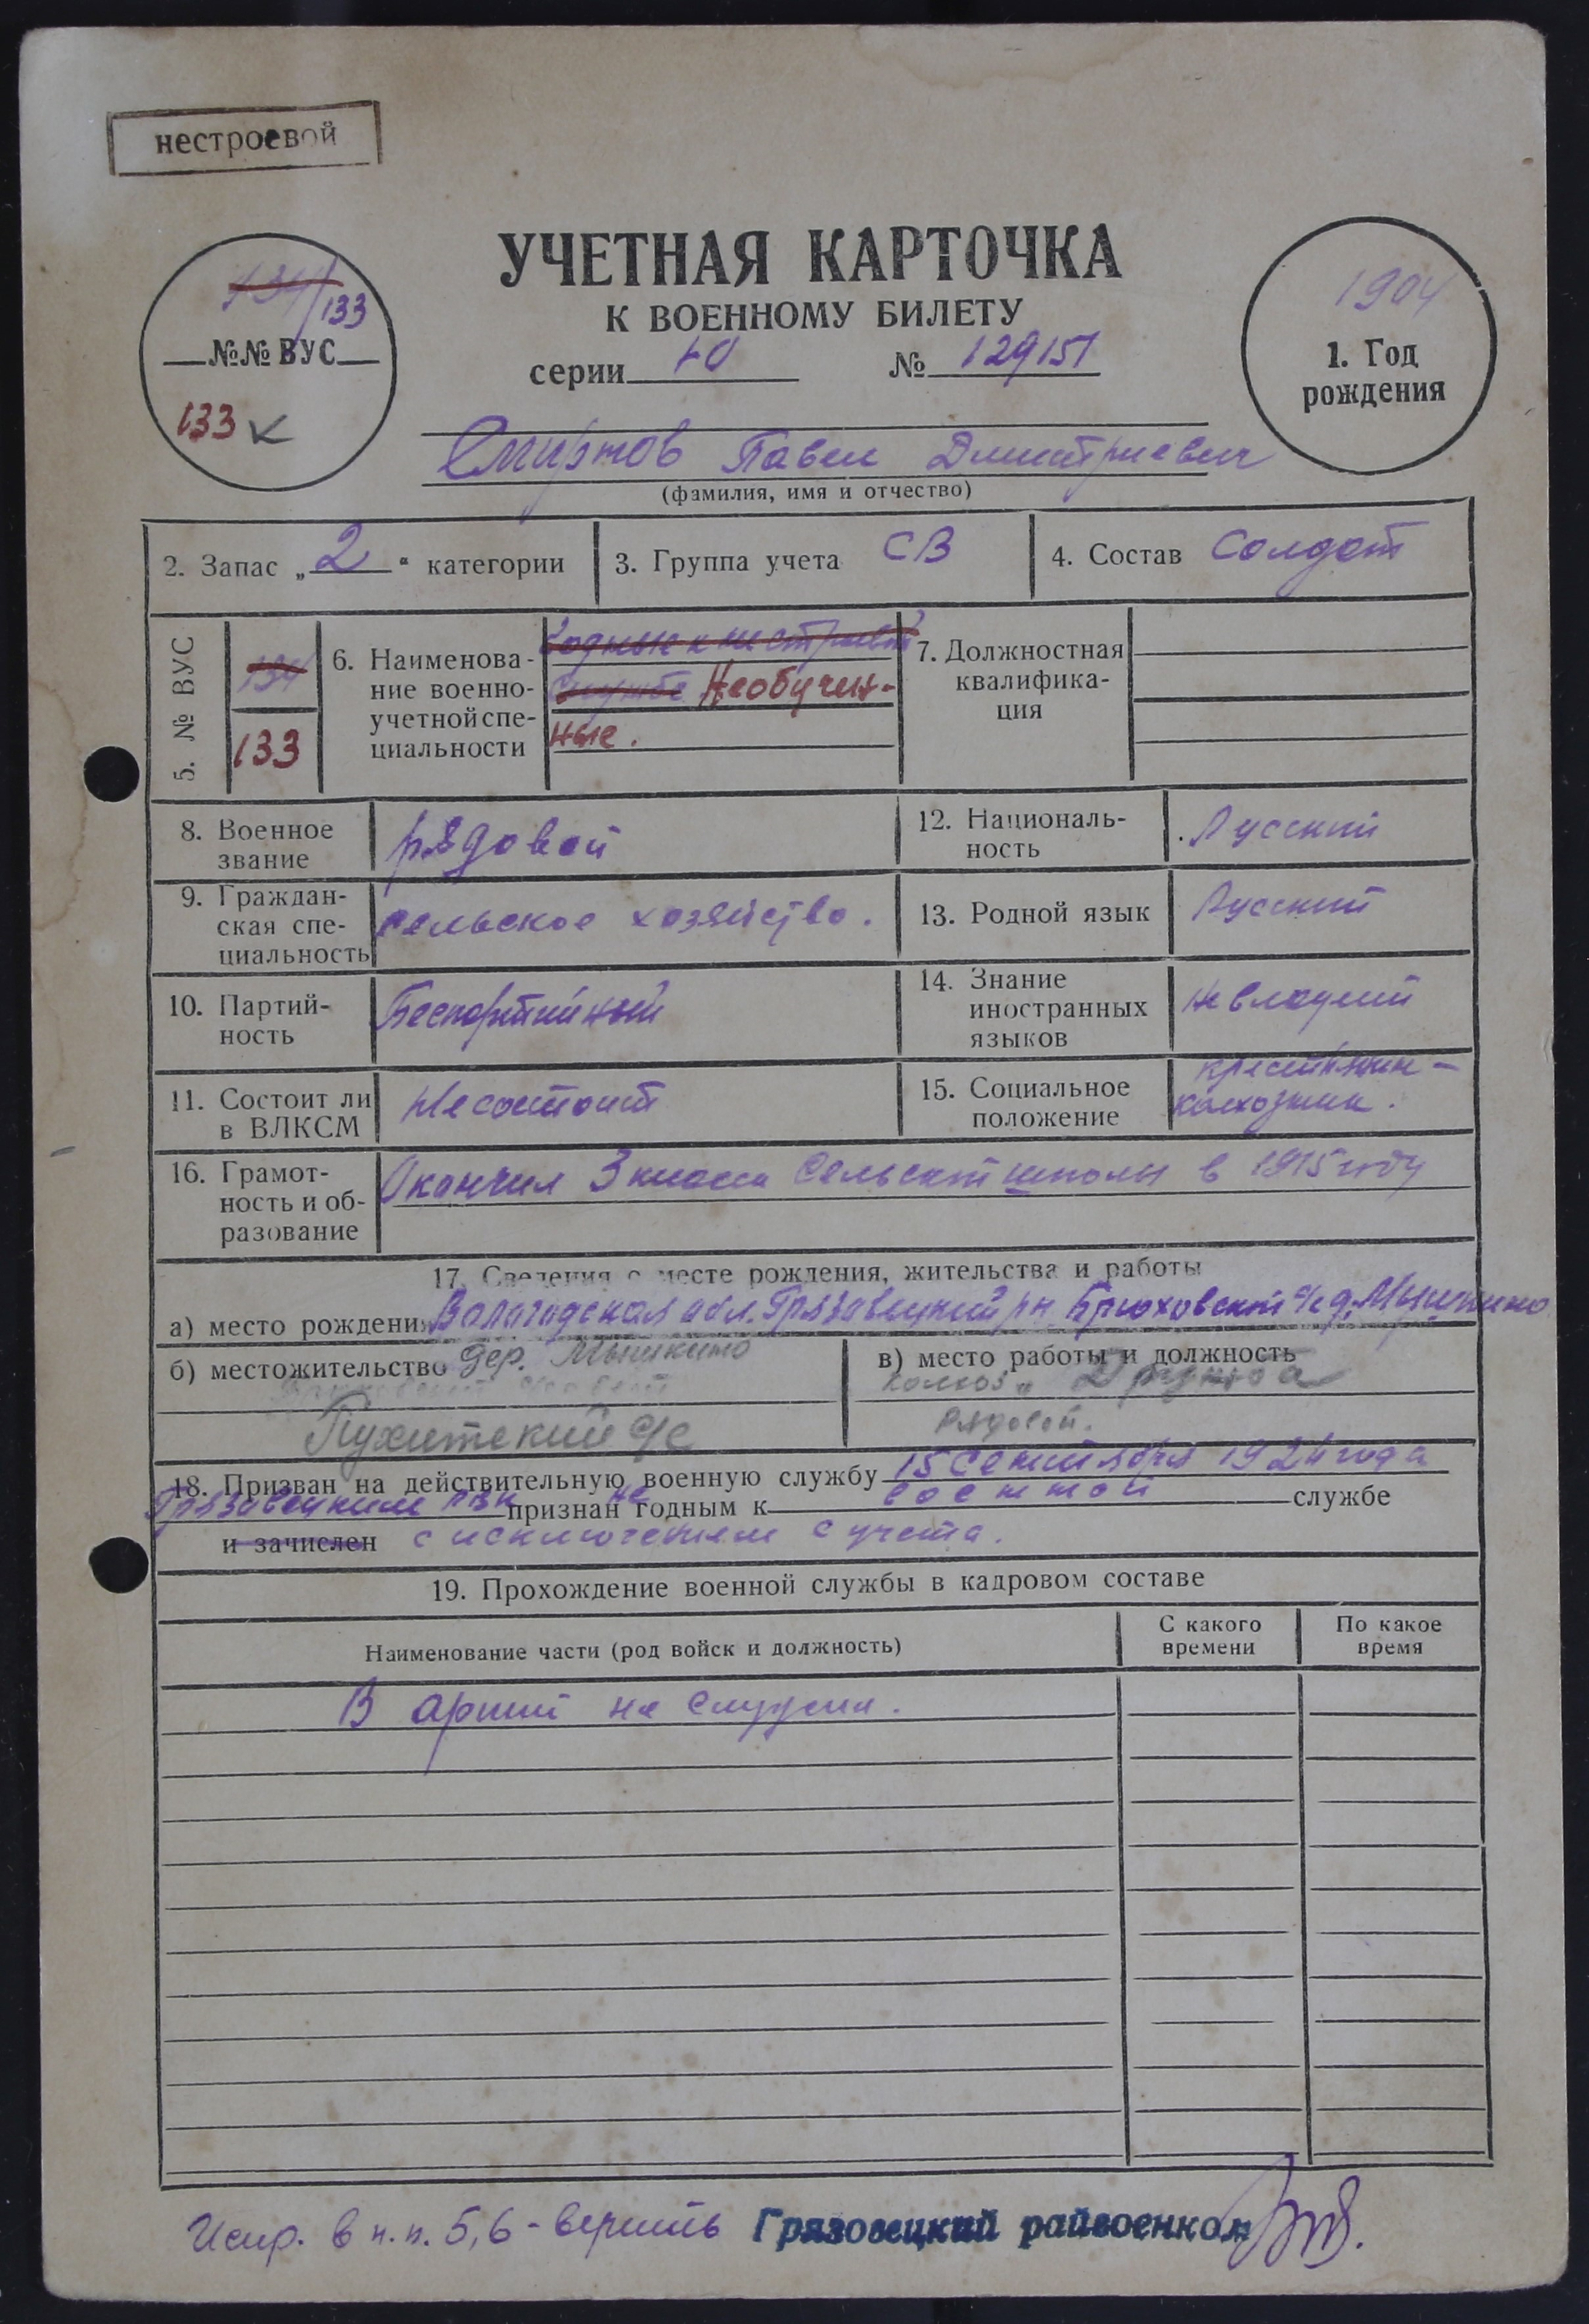 нестроевой
УЧЕТНАЯ КАРТОЧКА
К ВОЕННОМУ БИЛЕТУ
серии № 129151
134/133
№№ ВУС
133 к
1904
1. Год
рождения
Смирнов Павел Дмитриевич
(фамилия, имя и отчество)
2. Запас „2“ категории
3. Группа учета СВ
4. Состав Солдат
5. № ВУС
134
133
6. Наименова-
ние военно-
учетной спе-
циальности
Годные к нестроевой
службе Необучен-
ные.
7. Должностная
квалифика-
ция
8. Военное
звание
рядовой
12. Националь-
ность
Русский
9. Граждан-
ская спе-
циальность
сельское хозяйство.
13. Родной язык
Русский
10. Партий-
ность
Беспартийный
14. Знание
иностранных
языков
не владеет
11. Состоит ли
в ВЛКСМ
Не состоит
15. Социальное
положение
крестьянин-
колхозник.
16. Грамот-
ность и об-
разование
Окончил 3 класса сельской школы в 1915 году
17. Сведения о месте рождения, жительства и работы
а) место рождения Вологодская обл. Грязовецкий рн. Брюховский с/с д. Мышкино
б) местожительство дер. Мышкино
Пухитский с/с
в) место работы и должность
колхоз „Дружба
рядовой.
18. Призван на действительную военную службу 15 сентября 1924 года
Грязовецким РВК признан не годным к военной службе
и зачислен с исключением с учета.
19. Прохождение военной службы в кадровом составе
Наименование части (род войск и должность)
С какого
времени
По какое
время
В армии не служил.
Испр. в п.п. 5,6 - верить Грязовецкий райвоенком